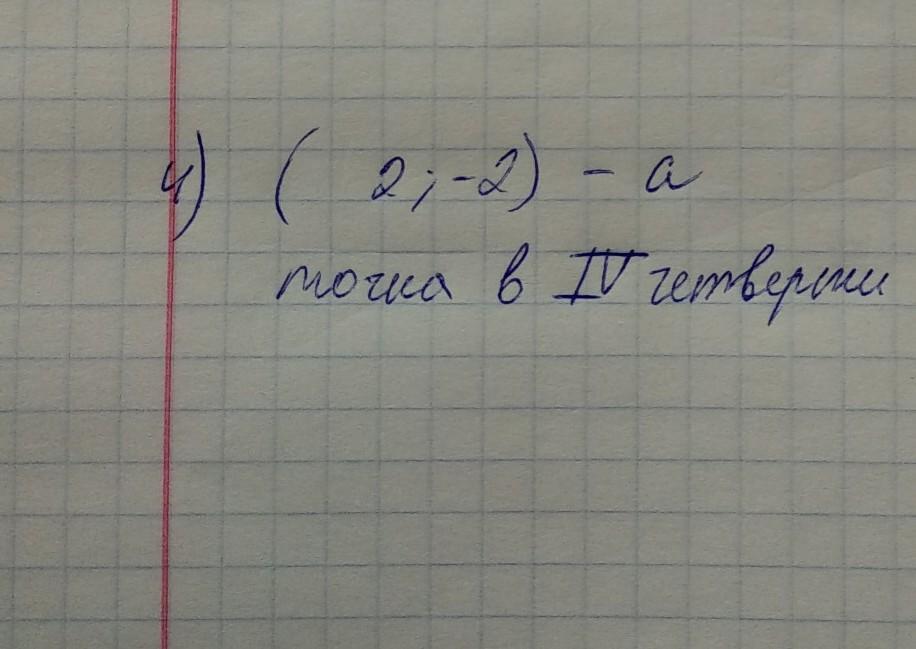 4) ( 2 ; -2) - a
точка в IV четверти